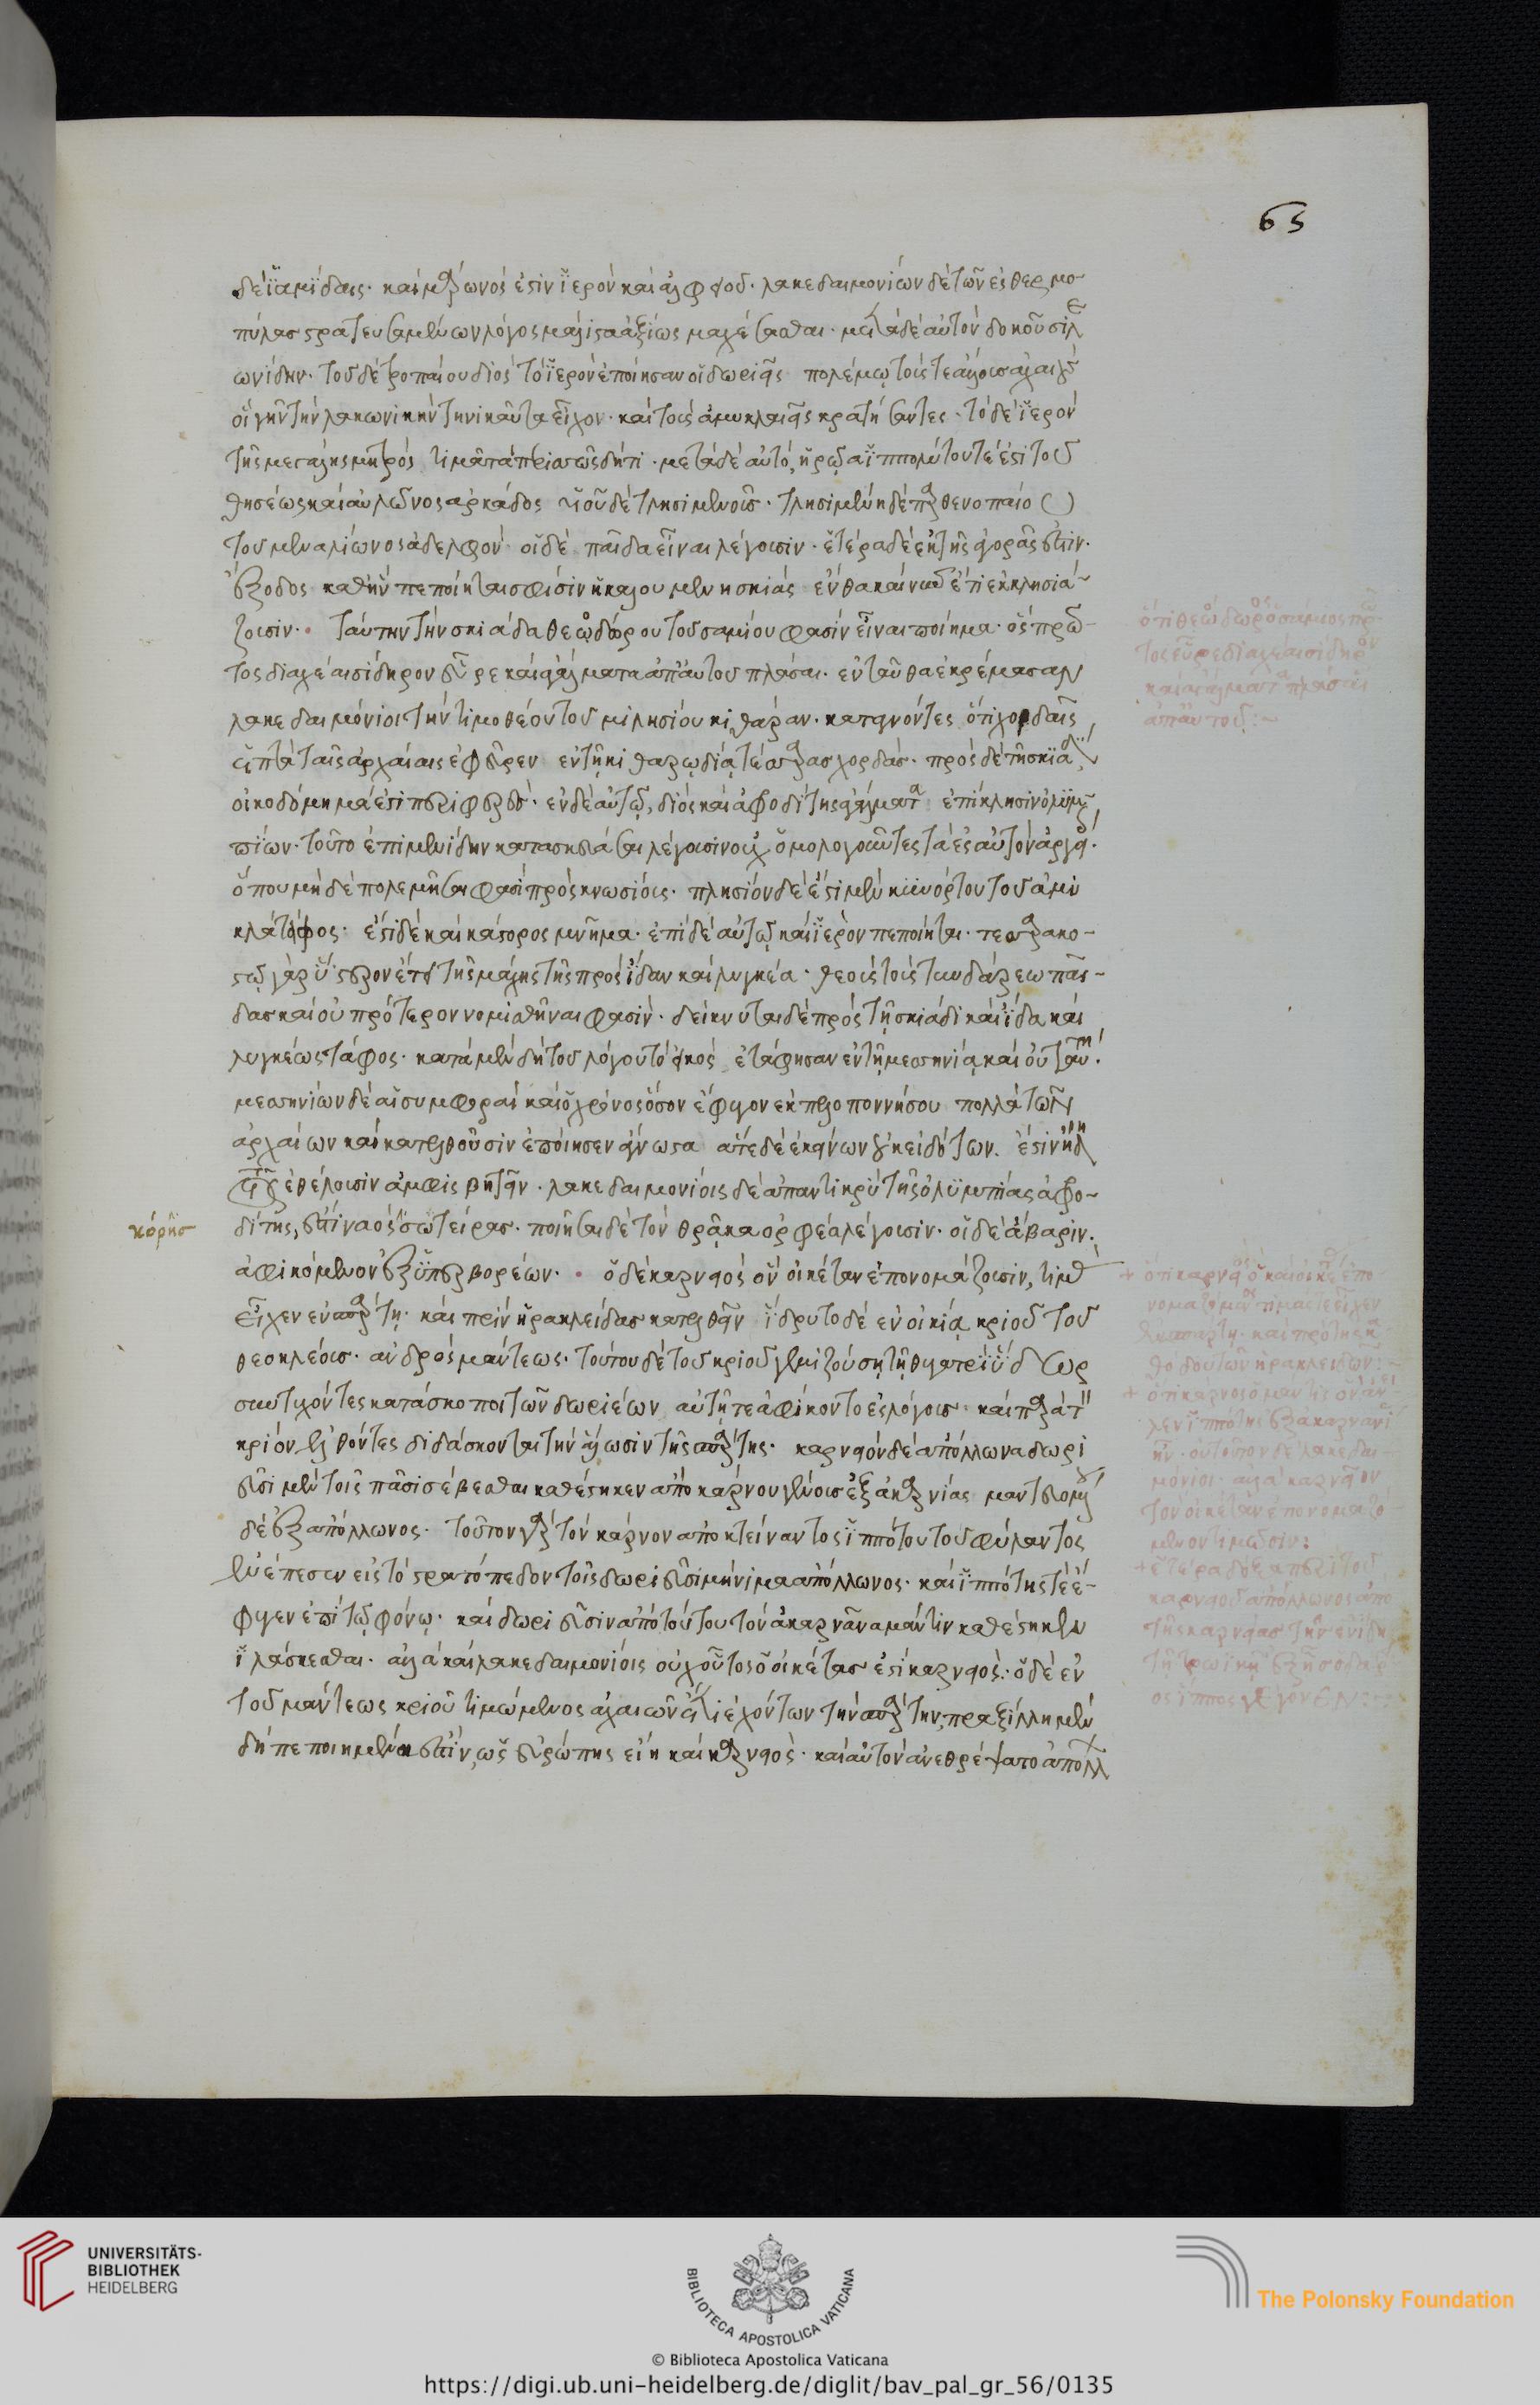 65
δὲ ἰαμίδαις· καὶ μάρωνός ἐστιν ἱερὸν καὶ ἀλφειοῦ· λακεδαιμονίων δὲ τῶν ἐς θερμο
πύλας στρατευσαμένων λόγος μάλιστα ἀξίως μαχέσασθαι· μετὰ δὲ αὐτὸν δοκοῦσι λε
ωνίδην· τοῦ δὲ τροπαίου διὸς τὸ ἱερὸν ἐποίησαν οἱ δωριεῖς πολέμῳ τούς τε ἄλλους ἀχαιοὺς
οἳ γῆν τὴν λακωνικὴν τηνικαῦτα εἶχον· καὶ τοὺς ἀμυκλαιεῖς κρατήσαντες· τὸ δὲ ἱερὸν
τῆς μεγάλης μητρὸς τιμᾶται περισσῶς δή τι· μετὰ δὲ αὐτό, ἡρῷα ἱππολύτου τέ ἐστι τοῦ
θησέως καὶ αὐλῶνος ἀρκάδος υἱοῦ δὲ τλησιμένους· τλησιμένη δὲ παρθενοπαίο( )
τοῦ μεναλίωνος ἀδελφόν· οἱ δὲ παῖδα εἶναι λέγουσιν· ἑτέρα δὲ ἐκ τῆς ἀγορᾶς ἐστιν·
ἔξοδος καθ' ἣν πεποίηταί σφισιν ἡ καλουμένη σκιάς ἔνθα καὶ νῦν ἔτι ἐκκλησιά-
ζουσιν· ταύτην τὴν σκιάδα θεοδώρου τοῦ σαμίου φασὶν εἶναι ποίημα· ὃς πρῶ-
τος διαχέαι σίδηρον εὗρε καὶ ἀγάλματα ἀπ' αὐτοῦ πλάσαι· ἐνταῦθα ἐκρέμασαν
λακεδαιμόνιοι τὴν τιμοθέου τοῦ μιλησίου κιθάραν· καταγνόντες ὅτι χορδαῖς
ἑπτὰ ταῖς ἀρχαίαις ἐφεῦρεν ἐν τῇ κιθαρῳδίᾳ τέσσαρας χορδάς· πρὸς δὲ τῇ σκιάδι
οἰκοδόμημά ἐστι περιφερές· ἐν δὲ αὐτῷ, διὸς καὶ ἀφροδίτης ἀγάλματα ἐπίκλησιν ὀλυμ
πίων· τοῦτο ἐπιμενίδην κατασκευάσαι λέγουσιν οὐχ ὁμολογοῦντες τὰ ἐς αὐτὸν ἀργείοις·
ὅπου μηδὲ πολεμῆσαι φασὶ πρὸς κνωσίους· πλησίον δέ ἐστι μὲν κυνόρτου τοῦ ἀμύ
κλα τάφος· ἔστι δὲ καὶ κάστορος μνῆμα· ἐπὶ δὲ αὐτῷ καὶ ἱερὸν πεποίηται· τεσσαρακο-
στῷ γὰρ ὕστερον ἔτει τῆς μάχης τῆς πρὸς ἴδαν καὶ λυγκέα· θεοὺς τοὺς τυνδάρεω παῖ-
δας καὶ οὐ πρότερον νομισθῆναι φασίν· δείκνυται δὲ πρὸς τῇ σκιάδι καὶ ἴδα καὶ
λυγκέως τάφος· κατὰ μὲν δὴ τοῦ λόγου τὸ εἰκὸς ἐτάφησαν ἐν τῇ μεσσηνίᾳ καὶ οὐ ταύτῃ·
μεσσηνίων δὲ αἱ συμφοραὶ καὶ ὁ χρόνος ὅσον ἔφυγον ἐκ πελοποννήσου πολλὰ τῶν
ἀρχαίων καὶ κατελθοῦσιν ἐποίησεν ἄγνωστα ἅτε δὲ ἐκείνων οὐκ εἰδότων. ἔστιν ἤδη
τοῖς ἐθέλουσιν ἀμφισβητεῖν· λακεδαιμονίοις δὲ ἀπαντικρὺ τῆς ὀλυμπίας ἀφρο-
κόρης
δίτης, ἐστὶ ναὸς σωτείρας· ποιῆσαι δὲ τὸν θρᾷκα ὀρφέα λέγουσιν· οἱ δὲ ἄβαριν·
ἀφικόμενον ἐξ ὑπερβορέων· ὁ δὲ καρνειὸς ὃν οἰκέταν ἐπονομάζουσιν, τιμὰς
εἶχεν ἐν σπάρτῃ· καὶ πρὶν ἡρακλείδας κατελθεῖν ἵδρυτο δὲ ἐν οἰκίᾳ κριοῦ τοῦ
θεοκλέους· ἀνδρὸς μάντεως· τούτου δὲ τοῦ κριοῦ γεμιζούσῃ τῇ θυγατρὶ ὕδωρ
συντυχόντες κατάσκοποι τῶν δωριέων αὐτῇ τε ἀφίκοντο ἐς λόγους· καὶ παρὰ τὸν
κριὸν ἐλθόντες διδάσκονται τὴν ἅλωσιν τῆς σπάρτης· καρνειὸν δὲ ἀπόλλωνα δωρι
εῦσι μὲν τοῖς πᾶσι σέβεσθαι καθέστηκεν ἀπὸ κάρνου γένους ἐξ ἀκαρνανίας μαντευομένου
δὲ ἐξ ἀπόλλωνος· τοῦτον γὰρ τὸν κάρνον ἀποκτείναντος ἱππότου τοῦ φύλαντος
ἐνέπεσεν εἰς τὸ στρατόπεδον τοῖς δωριεῦσι μήνιμα ἀπόλλωνος· καὶ ἱππότης τε ἔ-
φυγεν ἐπὶ τῷ φόνῳ· καὶ δωριεῦσιν ἀπὸ τούτου τὸν ἀκαρνᾶνα μάντιν καθέστηκεν
ἱλάσκεσθαι· ἀλλὰ καὶ λακεδαιμονίοις οὐχ οὗτος ὁ οἰκέτας ἐστὶ καρνειός· ὁ δὲ ἐν
τοῦ μάντεως κριοῦ τιμώμενος ἀχαιῶν ἔτι ἐχόντων τὴν σπάρτην, πραξίλλῃ μὲν
δὴ πεποιημένα ἐστίν, ὡς εὐρώπης εἴη καὶ καρνειός· καὶ αὐτὸν ἀνεθρέψατο ἀπόλλ
ὅτι θεόδωρος ὁ σάμιος πρῶ
τος εὗρε διαχέαι σίδηρον
καὶ ἀγάλματα πλάσαι
ἀπ' αὐτοῦ:~
UNIVERSITÄTS-
BIBLIOTHEK
HEIDELBERG
BIBLIOTECA APOSTOLICA VATICANA
The Polonsky Foundation
© Biblioteca Apostolica Vaticana
https://digi.ub.uni-heidelberg.de/diglit/bav_pal_gr_56/0135